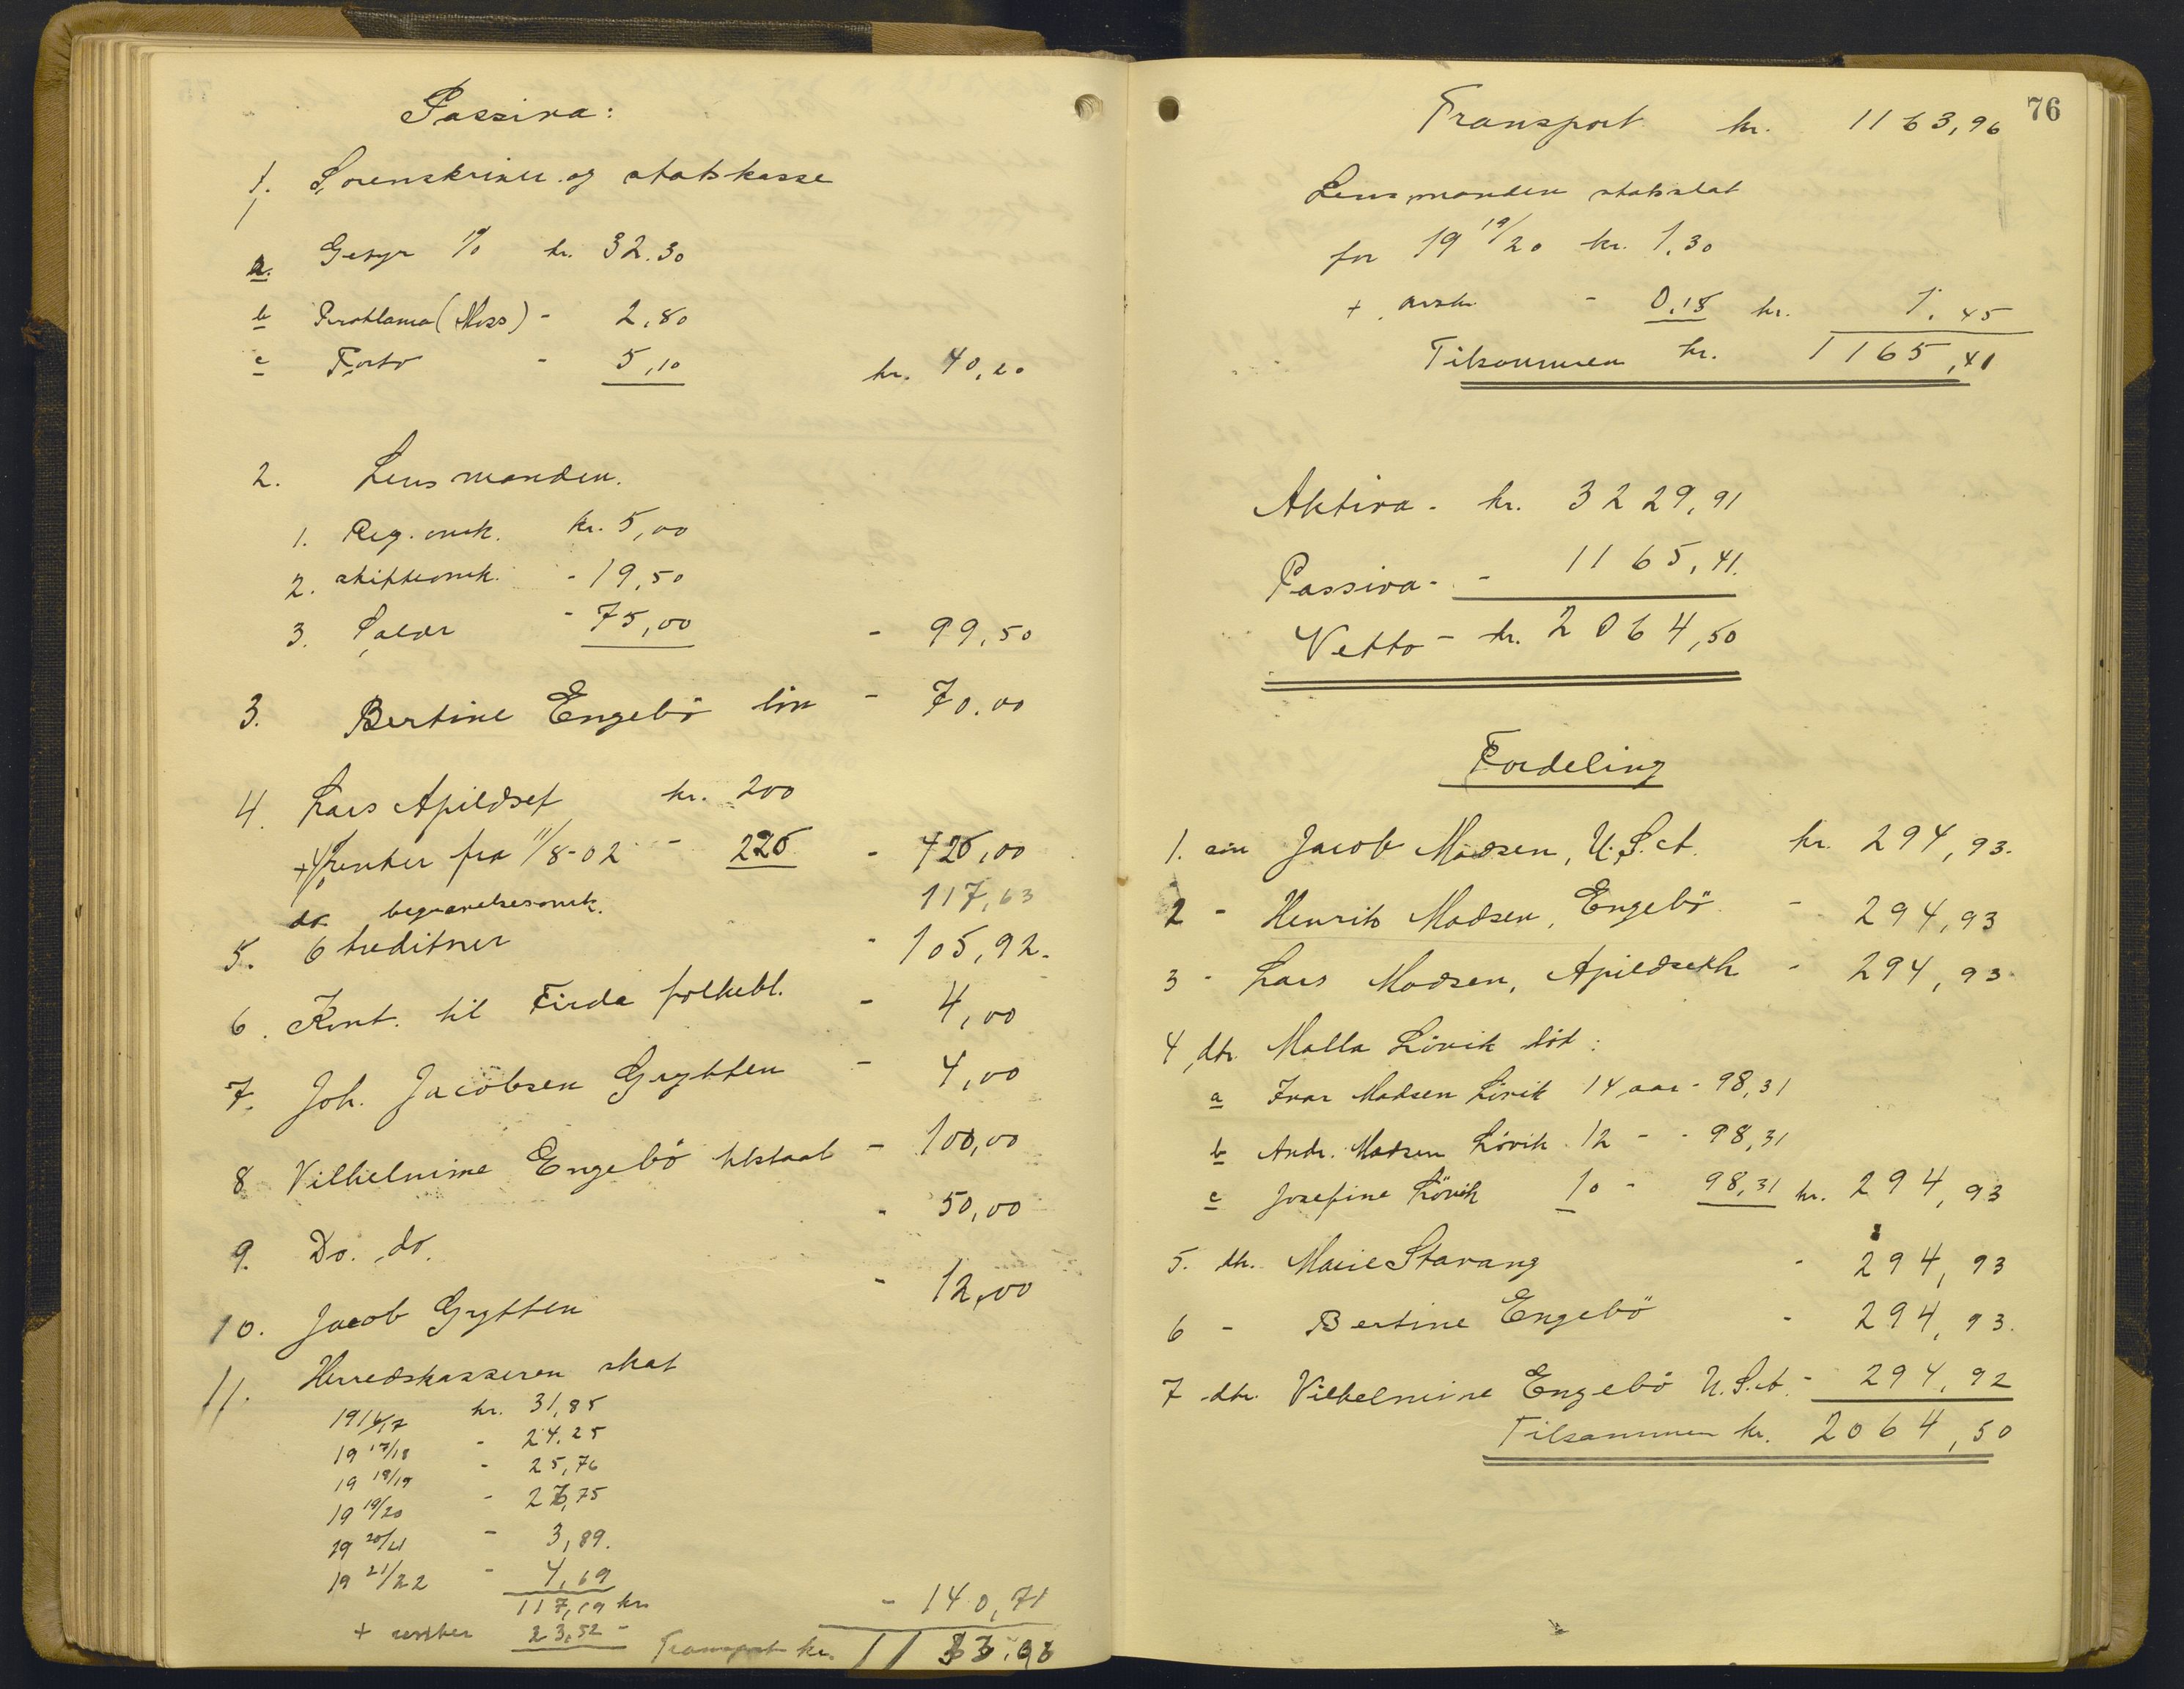 Passiva:
1. Sorenskriver og statskasse
a. Gebyr % kr. 32.30
b Proklama (Moss) - 2,80
c Porto - 5,10 kr. 40,20
2. Lensmanden.
1. Reg. omk. kr. 5,00
2. skifteomk. - 19,50
3. Salær - 75,00 - 99,50
3. Bertine Engebö lön - 70.00
4. Lars Apildset kr. 200
+ renter fra 11/8-02 - 220 - 420,00
do begravelsesomk. 117,63
5. 6 kreditorer - 105,92.
6. Kont. til Firda folkebl. - 4,00
7. Joh. Jacobsen Grytten - 4,00
8 Vilhelmine Engebö tilstaat - 100,00
9. Do. do. - 50,00
10. Jacob Grytten - 12,00
11. Herredskasseren skat
1916/17 kr. 31,85
19 17/18 - 24.25
19 18/19 - 25,76
19 19/20 - 26,75
19 20/21 - 3,89.
19 21/22 - 4,69
117,19 kr. - 140,71
+ renter 23,52 - Transport kr. 1163,96
76
Transport kr. 1163,96
Lensmanden statsskat
for 19 19/20 kr. 1,30
+ - 0,15 kr. 1,45
Tilsammen kr. 1165,41
Aktiva - kr. 3229,91
Passiva - - 1165,41.
Netto - kr. 2064,50
Fordeling
1. sön Jacob Madsen, U.S.A. kr. 294,93.
2 - Henrik Madsen, Engebö - 294,93
3 - Lars Madsen, Apildseth - 294,93
4, dtr. Malla Lövik död:
a Ivar Madsen Lövik 14 aar - 98,31
b Andr. Madsen Lövik 12 - - 98,31
c Josefine Lövik 10 - 98,31 kr. 294,93
5. dtr. Marie Stavang - 294,93
6 - Bertine Engebö - 294,93.
7 dtr. Vilhelmine Engebö U.S.A. - 294,92
Tilsammen kr. 2064,50